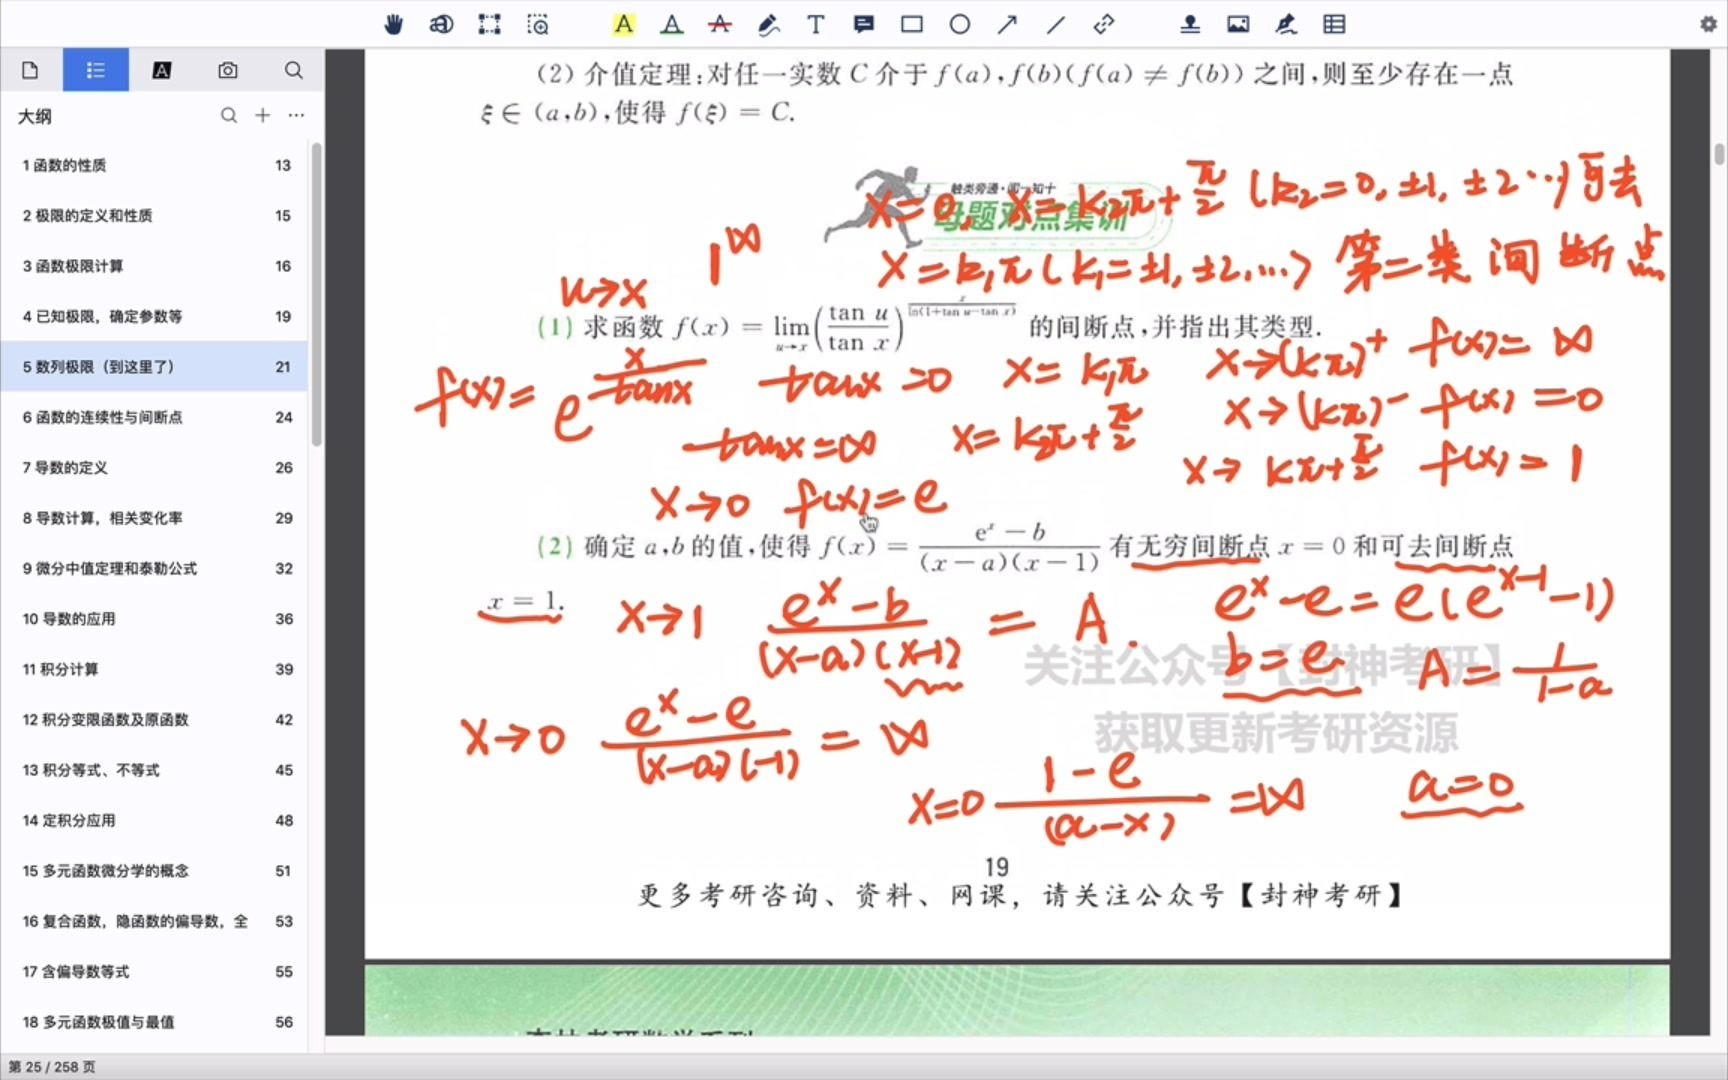 大纲
1 函数的性质 13
2 极限的定义和性质 15
3 函数极限计算 16
4 已知极限，确定参数等 19
5 数列极限（到这里了） 21
6 函数的连续性与间断点 24
7 导数的定义 26
8 导数计算，相关变化率 29
9 微分中值定理和泰勒公式 32
10 导数的应用 36
11 积分计算 39
12 积分变限函数及原函数 42
13 积分等式、不等式 45
14 定积分应用 48
15 多元函数微分学的概念 51
16 复合函数，隐函数的偏导数，全 53
17 含偏导数等式 55
18 多元函数极值与最值 56
第 25 / 258 页
(2) 介值定理:对任一实数 C 介于 f(a),f(b)(f(a) ≠ f(b)) 之间,则至少存在一点
ξ ∈ (a,b),使得 f(ξ) = C.
触类旁通·闻一知十
母题对点集训
x=0, x=k₂π+π/2 (k₂=0,±1,±2…)可去
x=k₁π(k₁=±1,±2,…) 第二类间断点
1^∞
u→x
(1) 求函数 f(x) = lim_{u→x} (tan u / tan x)^{x/ln(1+tan u−tan x)} 的间断点,并指出其类型.
f(x)= e^{x/tanx} tanx=0 x=k₁π x→(kπ)⁺ f(x)=∞
x→(kπ)⁻ f(x)=0
tanx=∞ x=k₂π+π/2 x→kπ+π/2 f(x)=1
x→0 f(x)=e
(2) 确定 a,b 的值,使得 f(x) = (eˣ − b)/((x − a)(x − 1)) 有无穷间断点 x = 0 和可去间断点
x = 1.
x→1 (eˣ−b)/((x−a)(x−1)) = A. eˣ−e=e(e^{x−1}−1)
b=e. A=1/(1−a)
x→0 (eˣ−e)/((x−a)(−1)) = ∞
x=0 (1−e)/(a−x) =∞ a=0
关注公众号【封神考研】
获取更新考研资源
19
更多考研咨询、资料、网课，请关注公众号【封神考研】